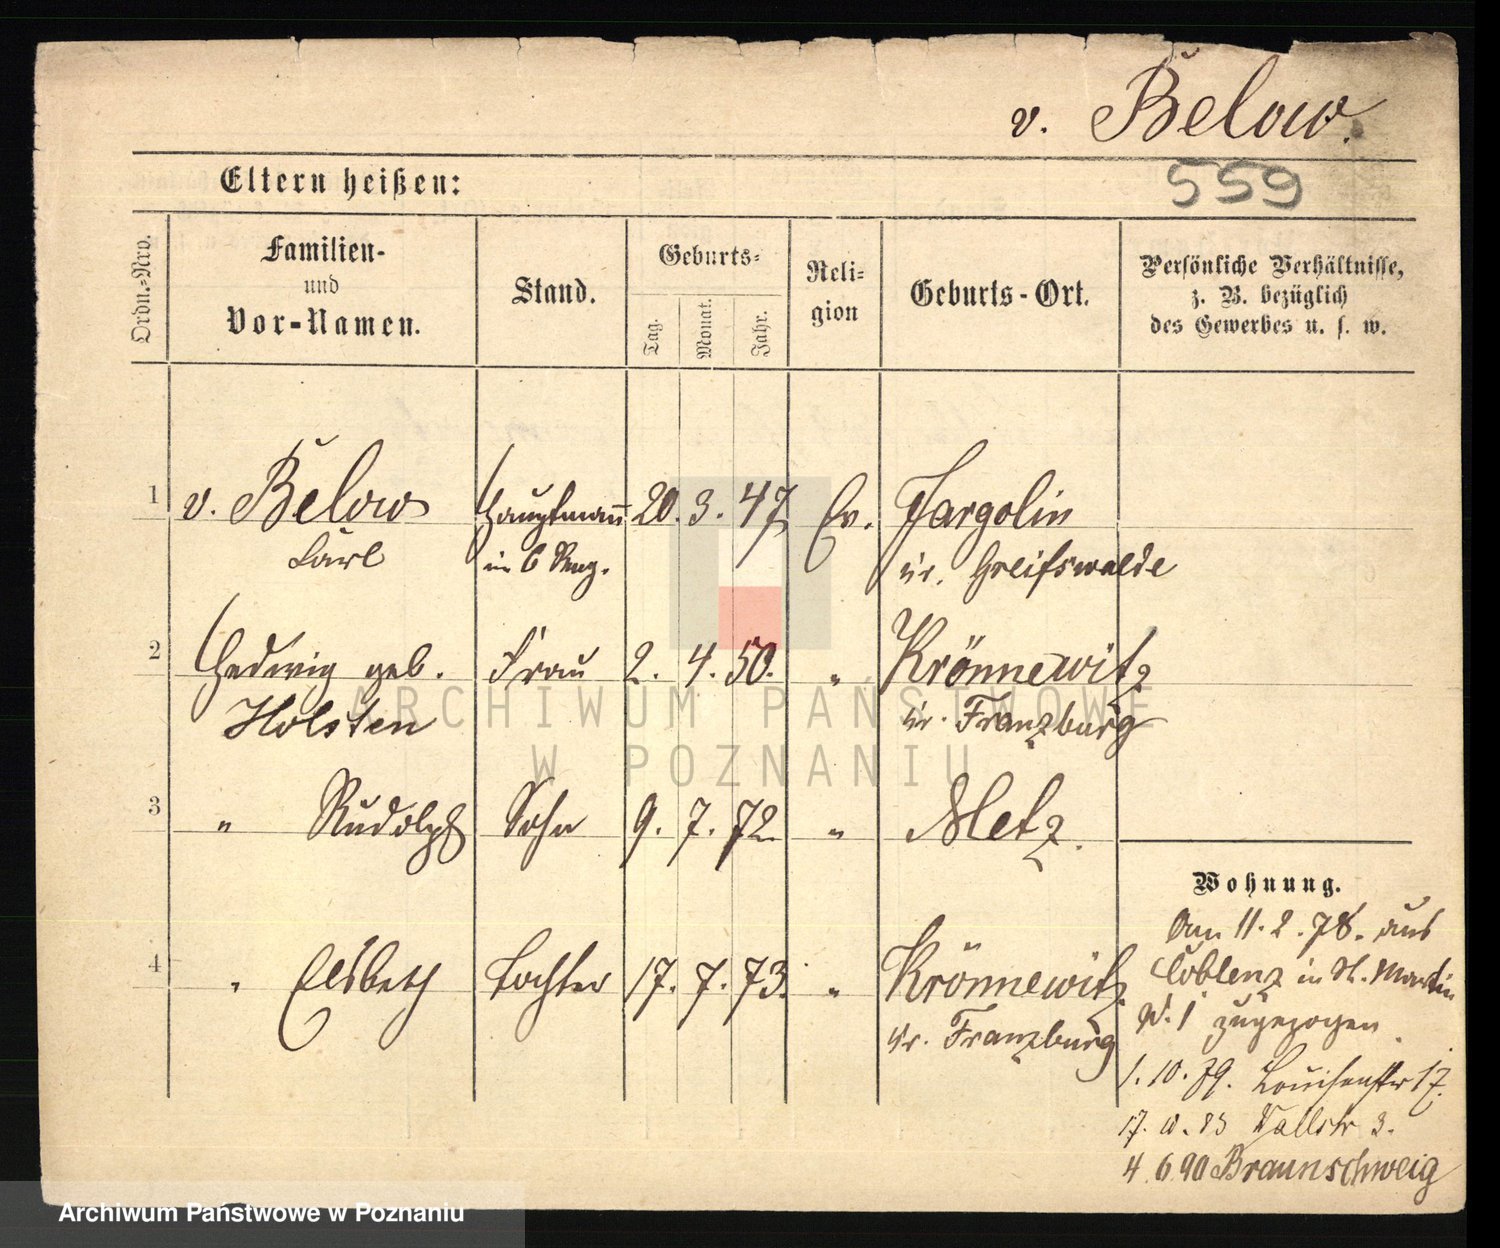 v. Below.
559
Eltern heißen:
Ordn.-Nro.
Familien-
und
Vor-Namen.
Stand.
Geburts-
Tag.
Monat.
Jahr.
Reli-
gion
Geburts-Ort.
Persönliche Verhältnisse,
z. B. bezüglich
des Gewerbes u. s. w.
1 v. Below Hauptmann 20. 3. 47 Ev. Jargolin
Carl im 6 Reg. Kr. Greifswalde
2 Hedwig geb. Frau 2. 4. 50. " Krönnewitz
Holsten Kr. Franzburg
3 " Rudolph Sohn 9. 7. 72 " Metz.
4 " Elsbeth Tochter 17. 7. 73. " Krönnewitz
Kr. Franzburg
Wohnung.
Am 11. 2. 78. aus
Coblenz in St. Martin
N. 1 zugezogen
1. 10. 79. Louisenstr 17.
17. 83 Wallstr 3.
4. 6 90 Braunschweig
ARCHIWUM PAŃSTWOWE
W POZNANIU
Archiwum Państwowe w Poznaniu